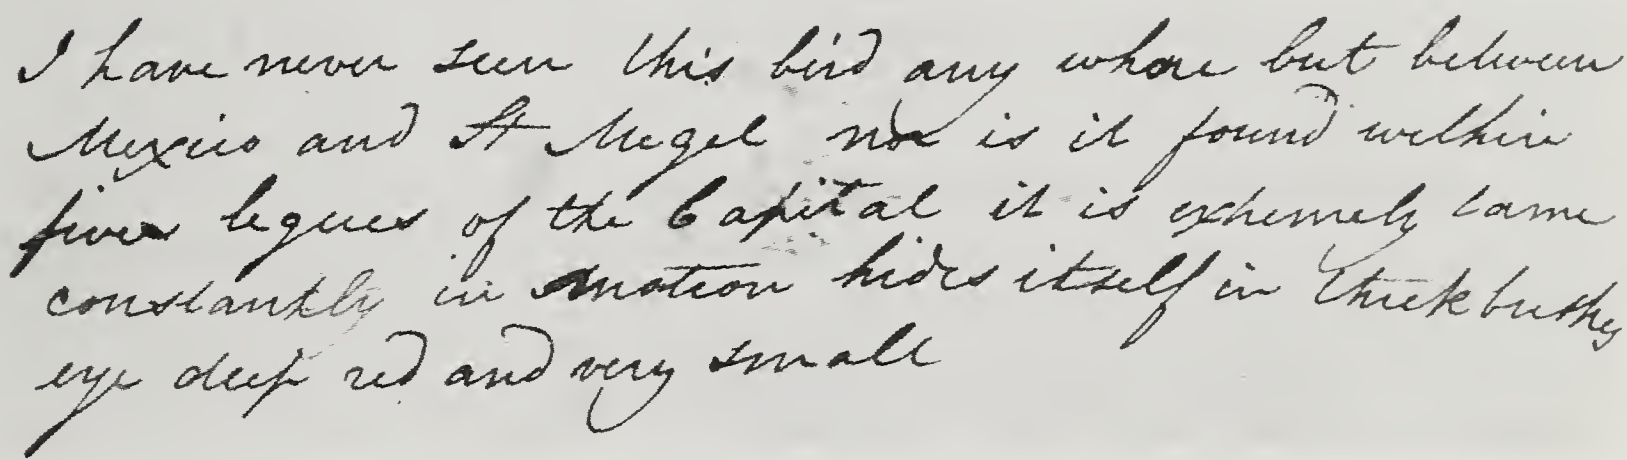 I have never seen this bird any whare but between
Mexico and St Megel nor is it found within
five legues of the Capital it is extremely tame
constantly in motion hides itself in thick bushes
eye deep red and very small